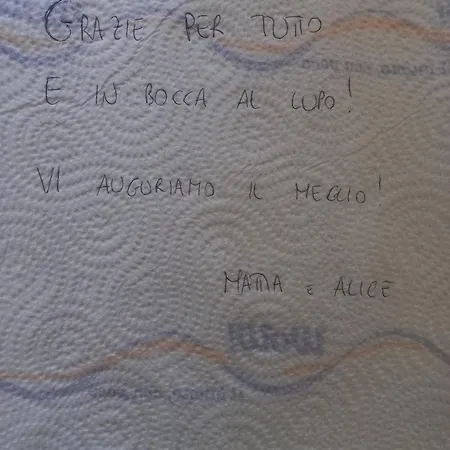 GRAZIE PER TUTTO
E IN BOCCA AL LUPO!
VI AUGURIAMO IL MEGLIO!
MATTIA E ALICE